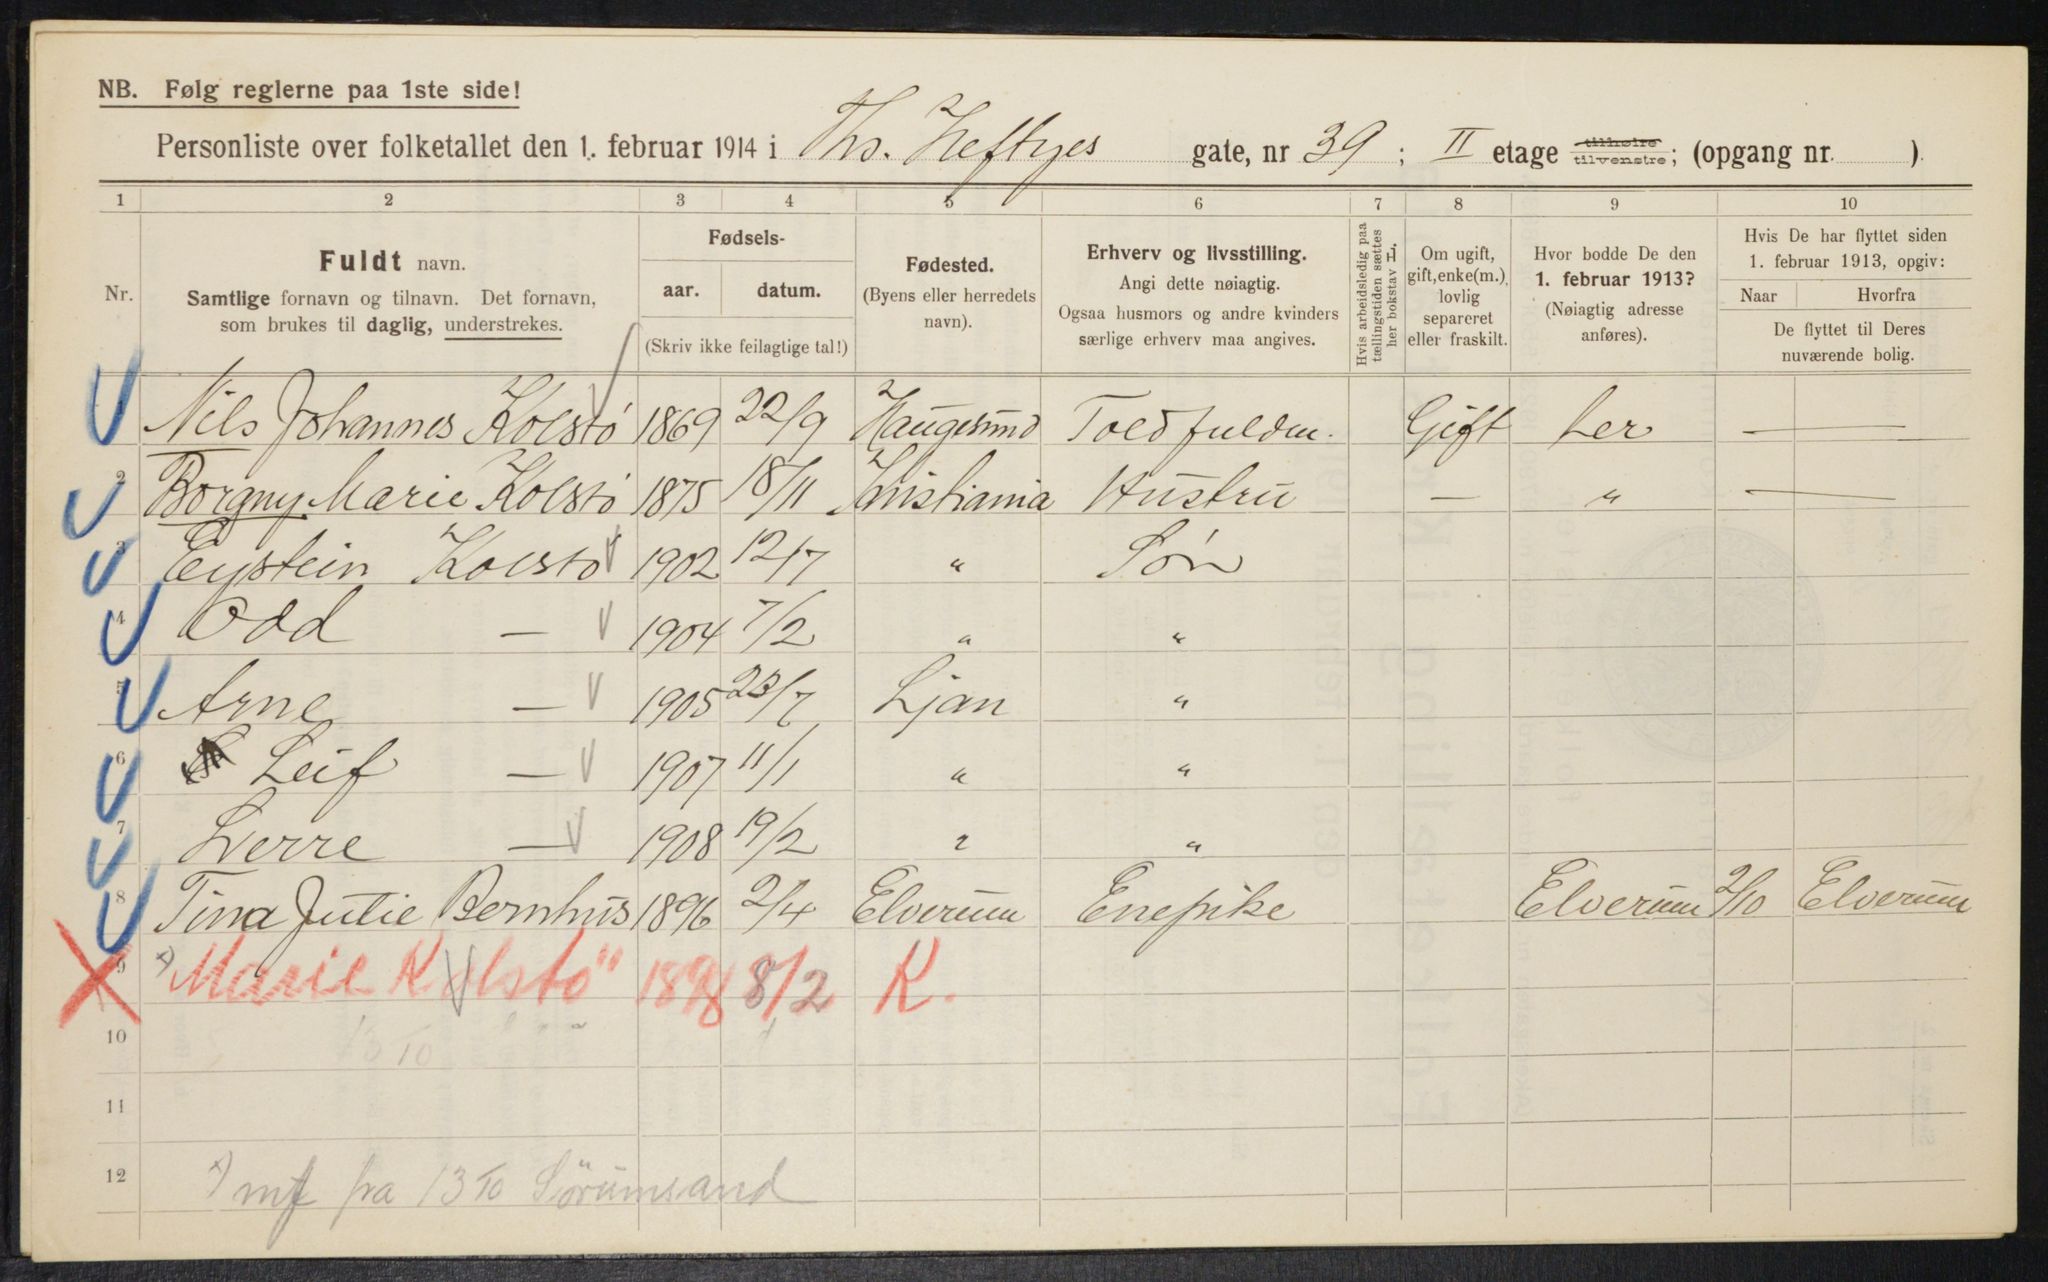 NB. Følg reglerne paa 1ste side!
Personliste over folketallet den 1. februar 1914 i Ths. Heftyes gate, nr 39 ; II etage tilhøire tilvenstre; (opgang nr. ).
1 2 3 4 5 6 7 8 9 10
Nr.
Fuldt navn.
Samtlige fornavn og tilnavn. Det fornavn,
som brukes til daglig, understrekes.
Fødsels-
aar. datum.
(Skriv ikke feilagtige tal!)
Fødested.
(Byens eller herredets
navn).
Erhverv og livsstilling.
Angi dette nøiagtig.
Ogsaa husmors og andre kvinders
særlige erhverv maa angives.
Hvis arbeidsledig paa
tællingstiden sættes
her bokstav L.
Om ugift,
gift, enke(m.),
lovlig
separeret
eller fraskilt.
Hvor bodde De den
1. februar 1913?
(Nøiagtig adresse
anføres).
Hvis De har flyttet siden
1. februar 1913, opgiv:
Naar Hvorfra
De flyttet til Deres
nuværende bolig.
Nils Johannes Kolstö 1869 22/9 Haugesund Toldfuldm. Gift her —
2 Borgny Marie Kolstö 1875 18/11 Kristiania Hustru — " —
3 Eystein Kolstö 1902 12/7 " Sön
4 Odd — 1904 7/2 " "
5 Arne — 1905 23/7 Ljan "
6 Leif — 1907 11/1 " "
7 Sverre — 1908 19/2 " "
8 Tina Julie Bernhus 1896 2/4 Elverum Enepike Elverum 2/10 Elverum
9 x) Marie Kolstö 1898 8/2 K.
10
11
12 x) mf fra 13 10 Sörumsand